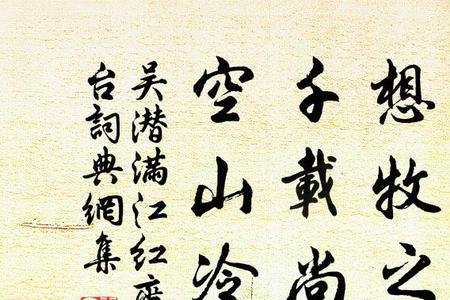 想牧之
千載尚
空山冷
吴潜满江红
台詞典網集